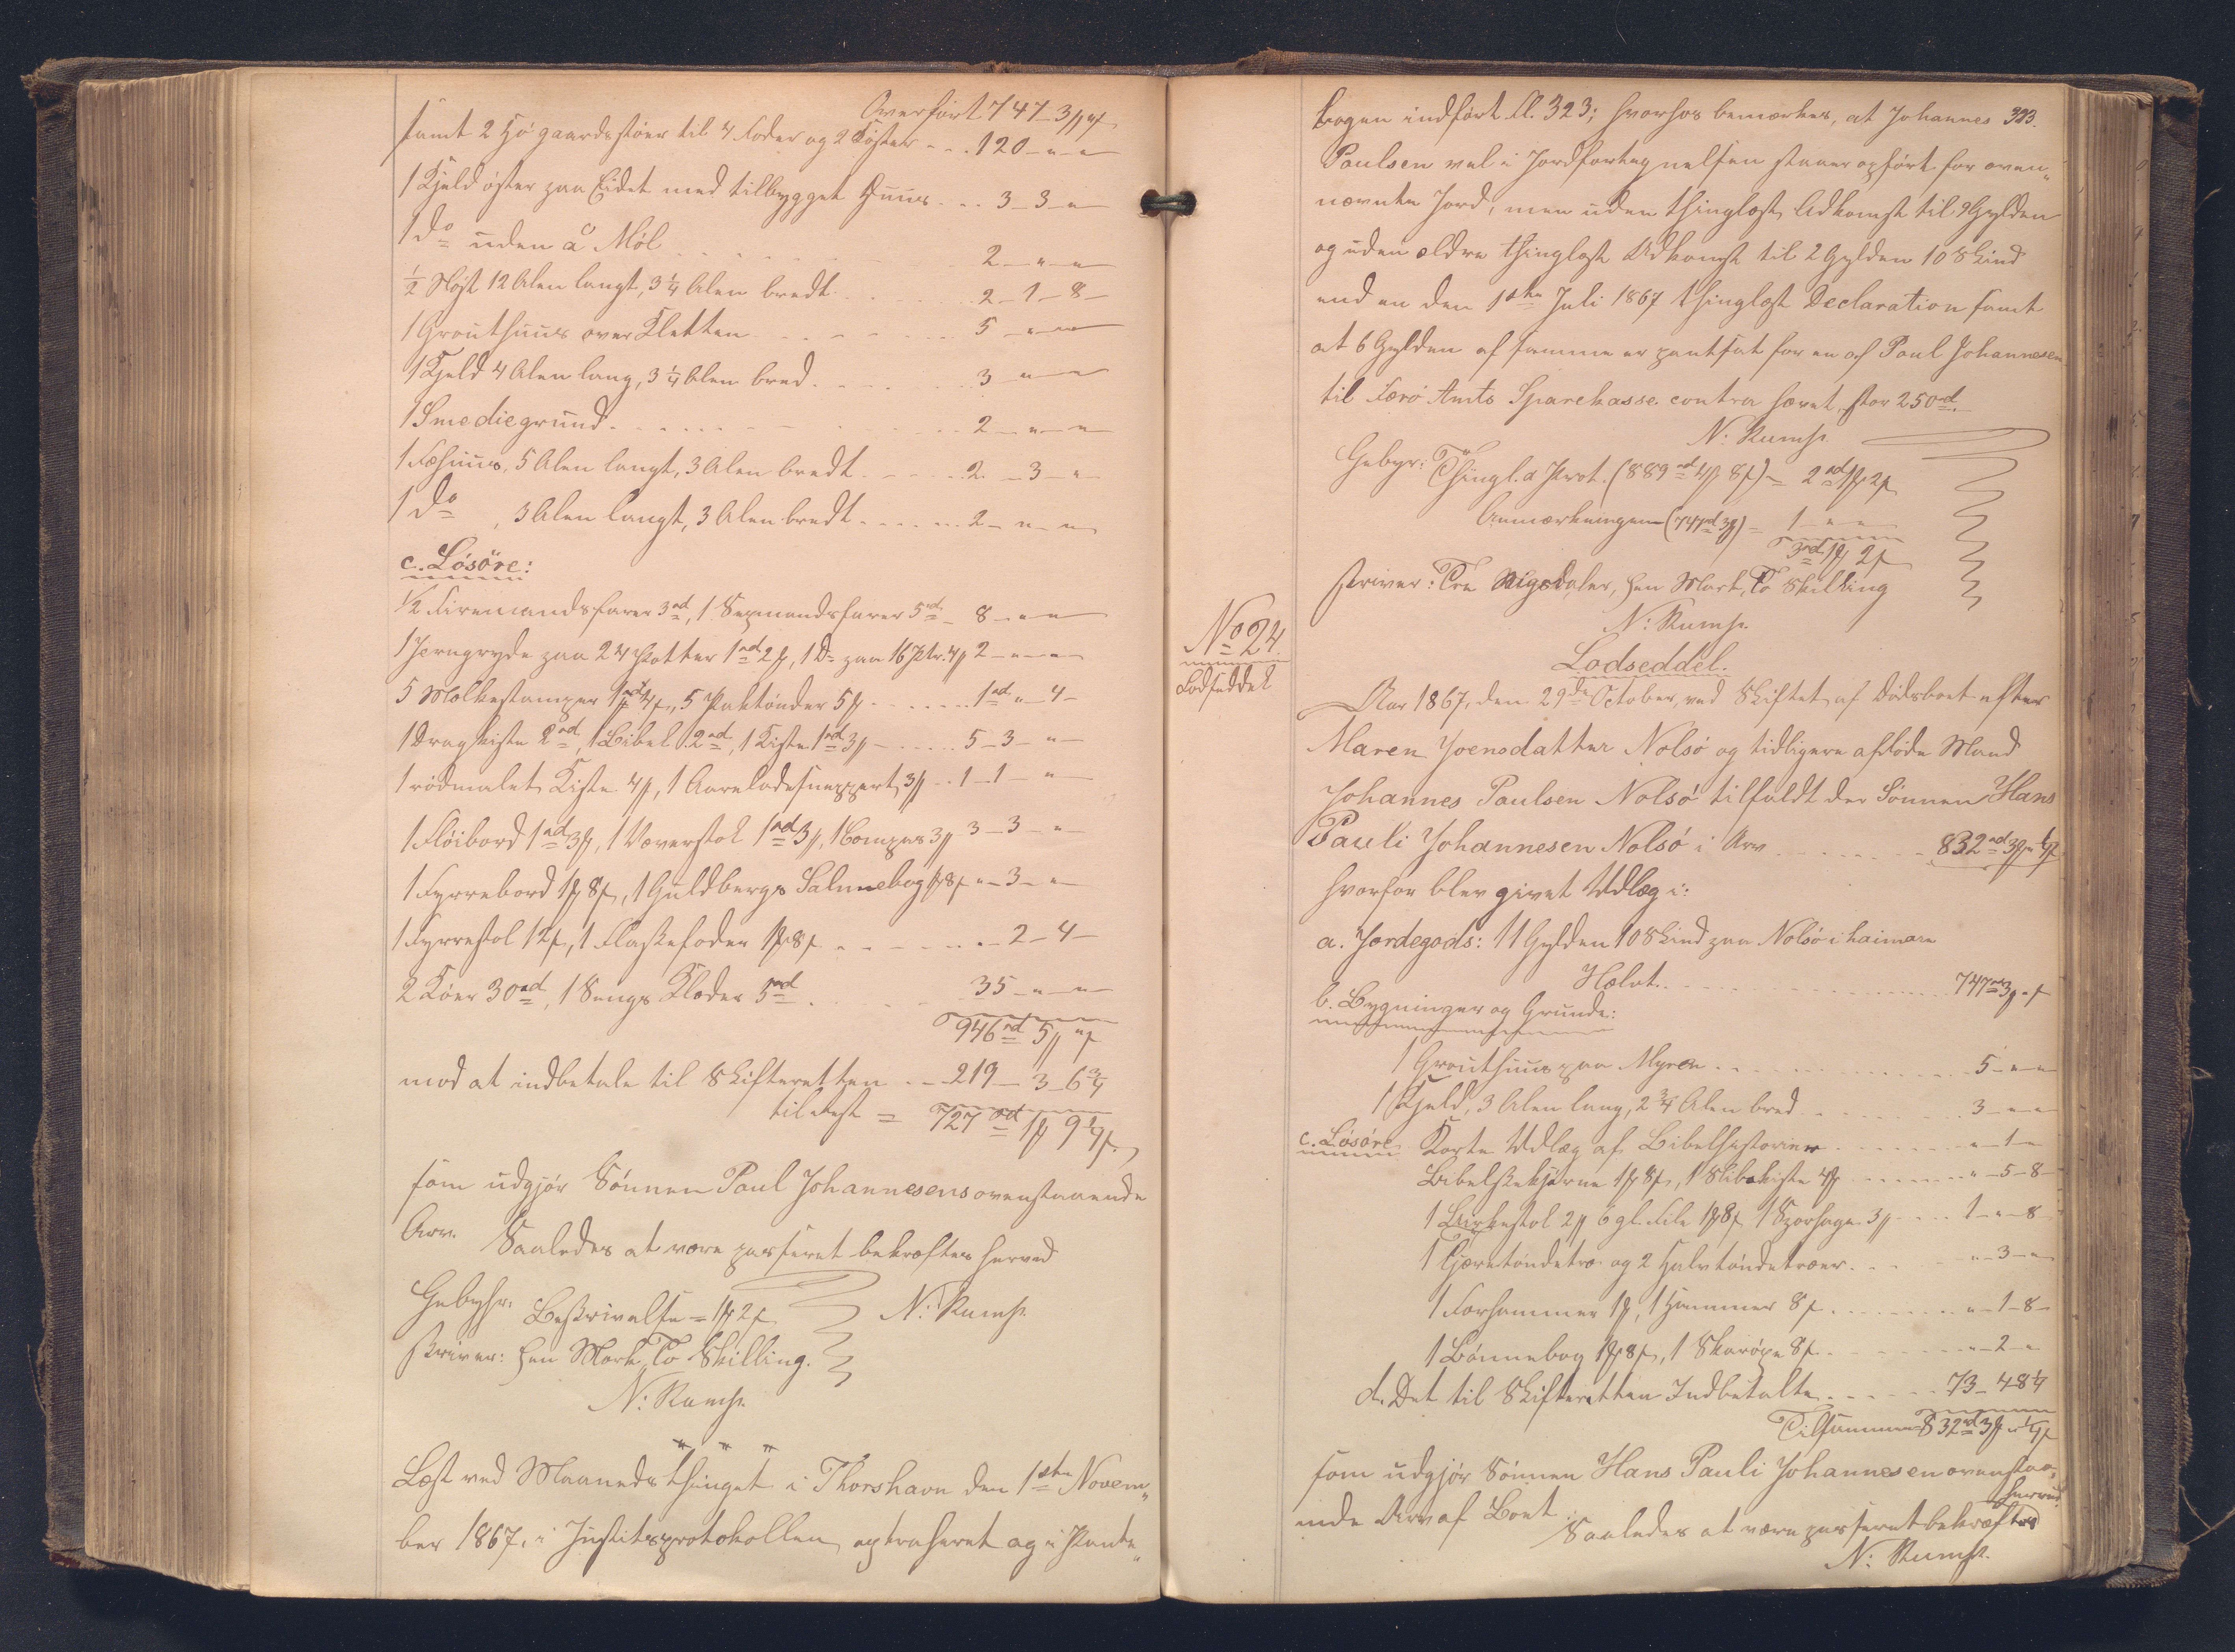 Overført 747-3ß "f
samt 2 Högaardsstöer til 4 Foder og 2 Töster - - . 120 - " - "
1 Kjeld öster paa Eidet med tilbygget Huus . . . 3 - 3 - "
1 Do uden å Möl . . . 2 - " - "
½ Nöst 12 Alen langt, 3¼ Alen bredt . . . 2 - 1 - 8 -
1 Grouthuus over Kletten . . . 5 - " - "
1 Kjeld 4 Alen lang, 3¼ Alen bred . . . 3 " - "
1 Smediegrund . . . 2 - " - "
1 Fæhuus, 5 Alen langt, 3 Alen bredt . . . 2 - 3 - "
1 Do , 3 Alen langt, 3 Alen bredt . . . 2 - " - "
c. Lösöre:
½ Firemandsfarer 3rd, 1 Sexmandsfarer 5rd - 8 - " - "
1 Jerngryde paa 24 Potter 1rd 2ß, 1 Do paa 16 Ptr. 4ß 2 - " - "
5 Molkestamper 1rd, 5 Saltönder 5ß . . . 1rd " - 4 -
1 Dragkiste 2rd, 1 Bibel 2rd, 1 Kiste 1rd 3ß - . . . 5 - 3 - "
1 rödmalet Kiste 4ß, 1 Aareladesnæppert 3ß . . 1 - 1 - "
1 Flöibord 1rd 3ß, 1 Væverstol 1rd 3ß, 1 Compas 3ß 3 - 3 - "
1 Fyrrebord 1ß 8f, 1 Guldbergs Salmebog 1ß 8f " - 3 - "
1 Fyrrestol 12f, 1 Flaskefoder 1ß 8f . . . - 2 - 4 -
2 Köer 30rd, 1 Sengs Klæder 5rd . . . 35 - " - "
946rd 5ß "f
mod at indbetale til Skifteretten . . 219 - 3 - 6¾
tilrest = 727rd 1ß 9¼f.
som udgjör Sönnen Paul Johannesens ovenstaaende
Arv. Saaledes at være passeret bekræftes herved
Gebyhr: Beskrivelse = 1ß 2f N: Kamp.
skriver: Een Mark To Skilling.
N: Kamp.
Læst ved Maanedsthinget i Thorshavn den 1ste Novem„
ber 1867, i Justitsprotokollen extraheret og i Pante„
bogen indfört fl. 323; hvorhos bemærkes, at Johannes 323.
Poulsen vel i Jordfortegnelsen staaer opfört for oven„
nævnte Jord, men uden thinglæst Adkomst til 9 Gylden
og uden ældre thinglæst Adkomst til 2 Gylden 10 Skind
end en den 1ste Juli 1867 thinglæst Declaration samt
at 6 Gylden af samme er pantsat for en af Poul Johannesen
til Færö Amts Sparekasse contra hævet, stor 250rd.
N: Kamp.
Gebyr: Thingl. a Prot. (889rd 4ß 8f) = 2rd 1ß 2f
Anmærkningen (747rd 3ß) = 1 - " - "
3rd 1ß 2f
skriver: Tre Rigsdaler, Een Mark, To Skilling
N: Kamp.
No 24.
Lodseddel
Lodseddel.
Aar 1867, den 29de October, ved Skiftet af Dödsboet efter
Maren Joensdatter Nolsö og tidligere aflöde Mand
Johannes Paulsen Nolsö tilfaldt der Sönnen Hans
Pauli Johannesen Nolsö i Arv . . . 832rd 3ß " ¼f
hvorfor blev givet Udlæg i:
a. Jordegods: 11 Gylden 10 Skind paa Nolsö i haimare
Hælvt. . . . 747rd 3ß " f
b. Bygninger og Grunde:
1 Grouthuus paa Myren . . . 5 - " - "
1 Kjeld, 3 Alen lang, 2¾ Alen bred . . . 3 - " - "
c. Lösöre Korte Udlæg af Bibelhistorien . . . " - 1 - "
Bibelskekjærne 1ß 8f, 1 Slibekiste 4ß . . . " - 5 - 8 -
1 Bænkestol 2ß 6 gl. File 1ß 8f 1 Sporsage 3ß . . . 1 - " - 8
1 Tjæretöndetræ og 2 Halvtöndetræer . . . " - 3 - "
1 Forhammer 1ß, 1 Hammer 8f . . . " - 1 - 8 -
1 Bönnebog 1ß 8f, 1 Skaröxe 8f . . . " - 2 - "
d. Det til Skifteretten Indbetalte . . . 73 - 4 8¼
Tilsammen 832rd 3ß " ¼f
som udgjör Sönnen Hans Pauli Johannesen ovenstaa„
ende Arv af Boet. Saaledes at være passeret bekræftes
herved
N: Kamp.